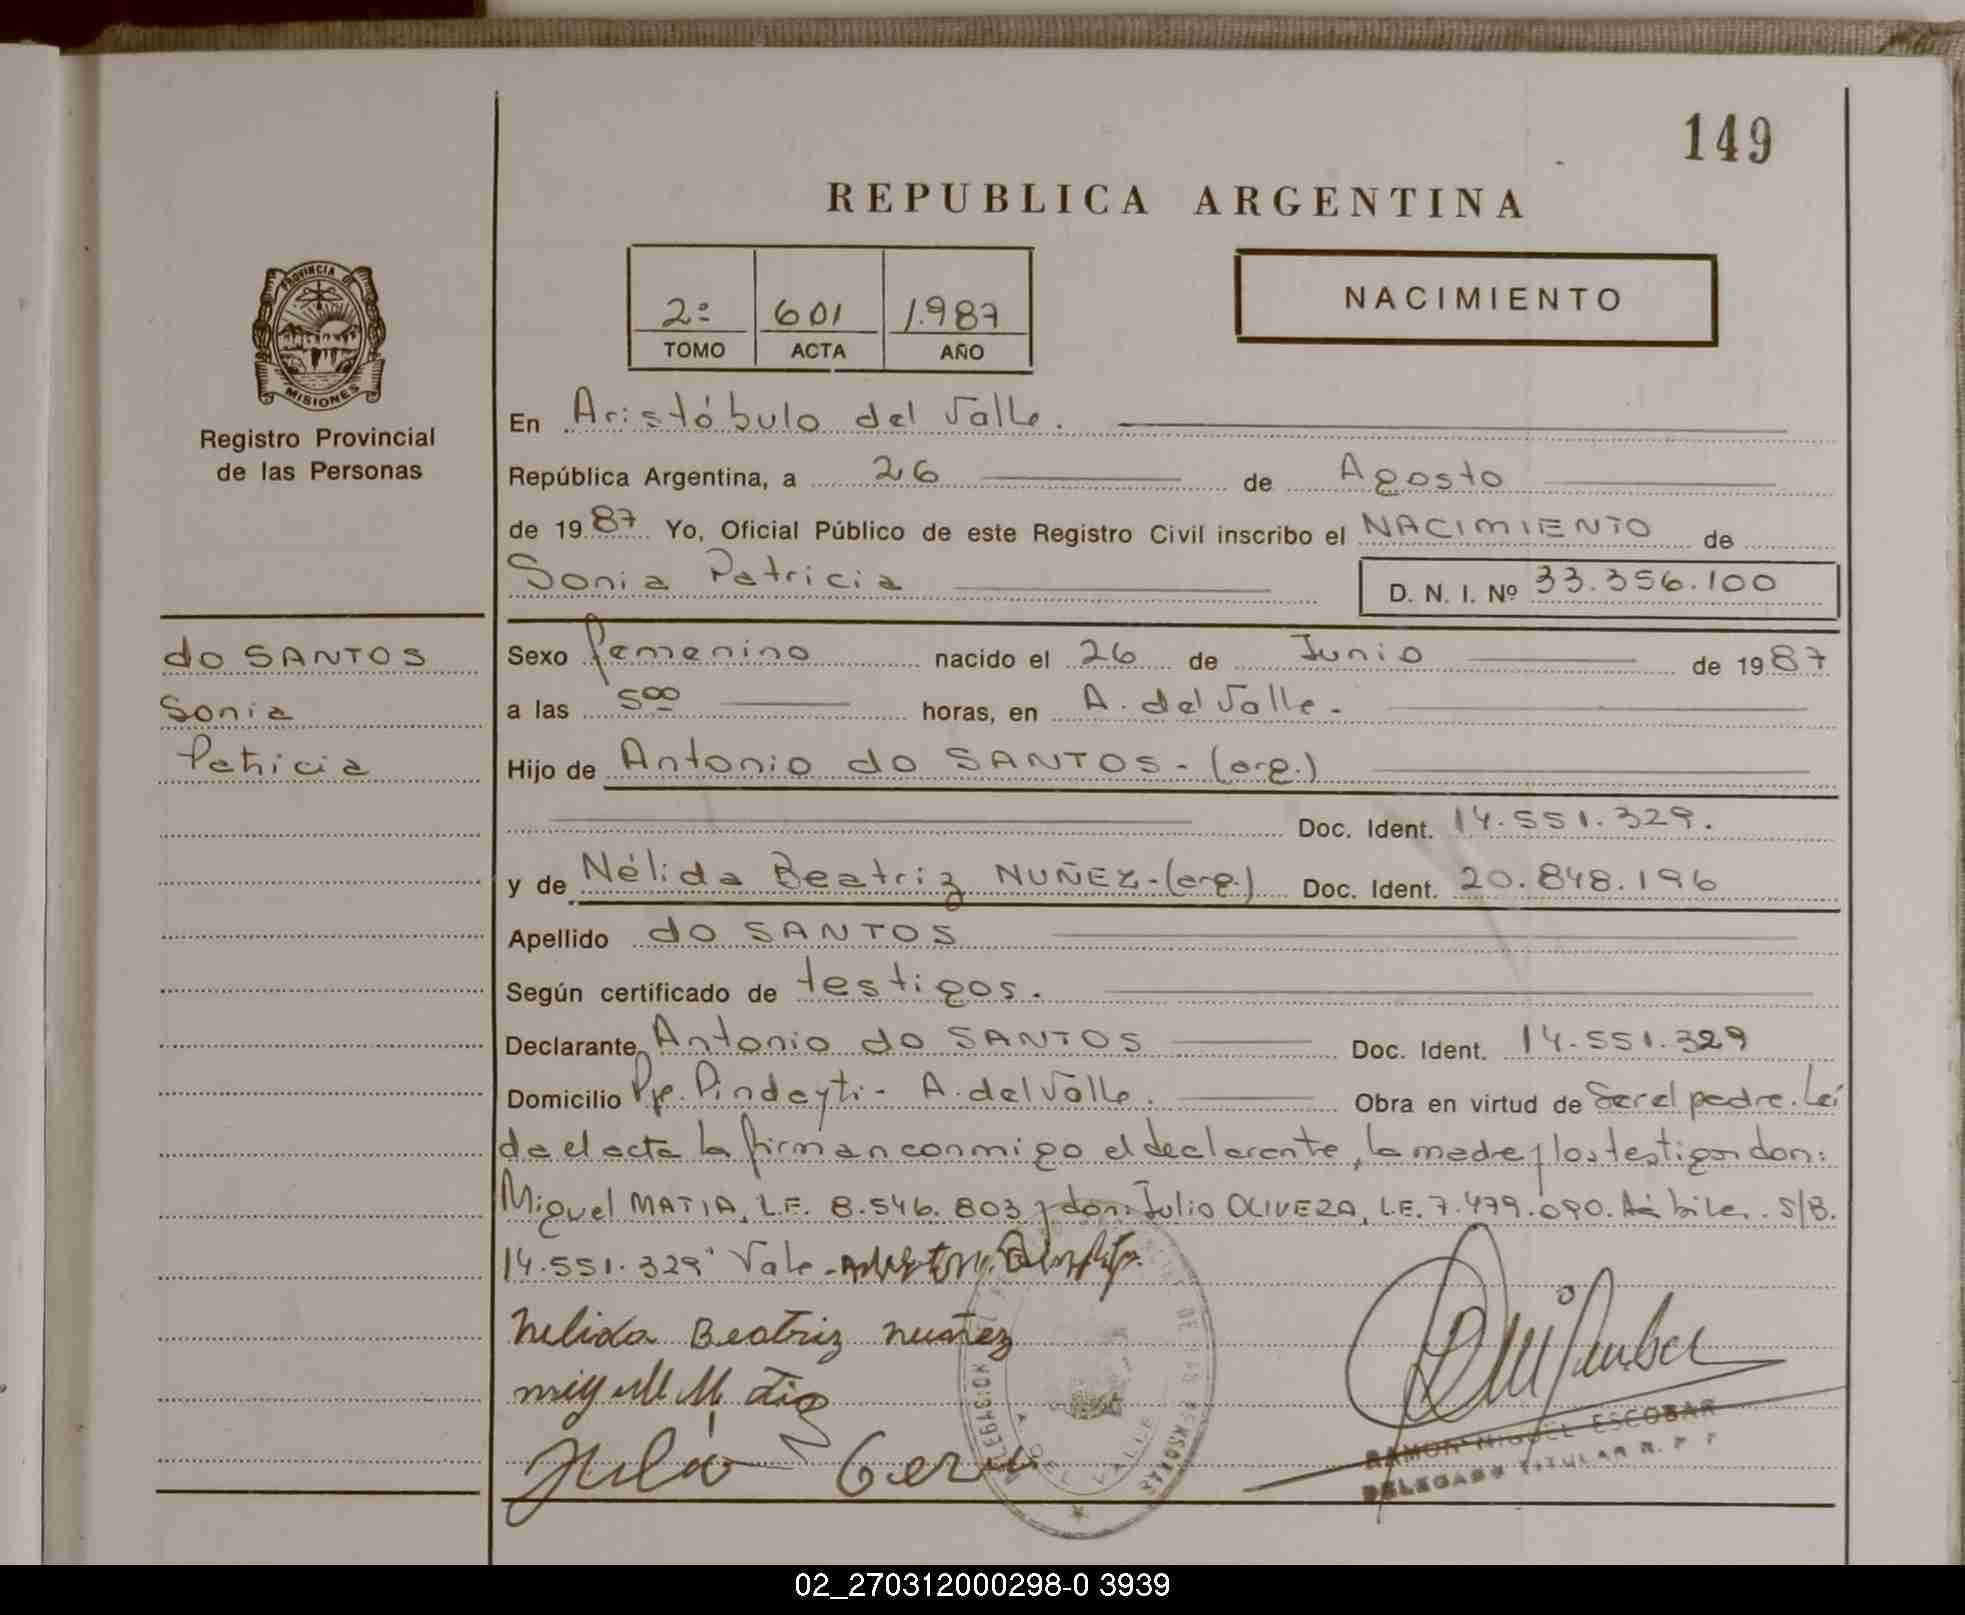 149
REPUBLICA ARGENTINA
PROVINCIA
MISIONES
Registro Provincial
de las Personas
2º 601 1.987
TOMO ACTA AÑO
NACIMIENTO
En Aristóbulo del Valle.
República Argentina, a 26 de Agosto
de 1987 Yo, Oficial Público de este Registro Civil inscribo el NACIMIENTO de
Sonia Patricia D. N. I. Nº 33.356.100
do SANTOS
Sonia
Patricia
Sexo femenino nacido el 26 de Junio de 1987
a las 5oo horas, en A. del Valle.-
Hijo de Antonio do SANTOS-(arg.)
Doc. Ident. 14.551.329.
y de Nélida Beatriz NUÑEZ-(arg.) Doc. Ident. 20.848.196
Apellido do SANTOS
Según certificado de testigos.
Declarante Antonio do SANTOS Doc. Ident. 14.551.329
Domicilio Pje. Pindayti- A. del Valle. Obra en virtud de Ser el padre. Leí
da el acta la firman conmigo el declarante, la madre y los testigos don:
Miguel MATIA, L.E. 8.546.803 y don: Julio OLIVERA, L.E. 7.479.090. Hábiles. S/B.
14.551.329 Vale.-
Nelida Beatriz nuñez
RAMON MIGUEL ESCOBAR
DELEGADO TITULAR R. P. P.
DELEGACION
A. DEL VALLE
DE LAS PERSONAS
02_270312000298-0 3939